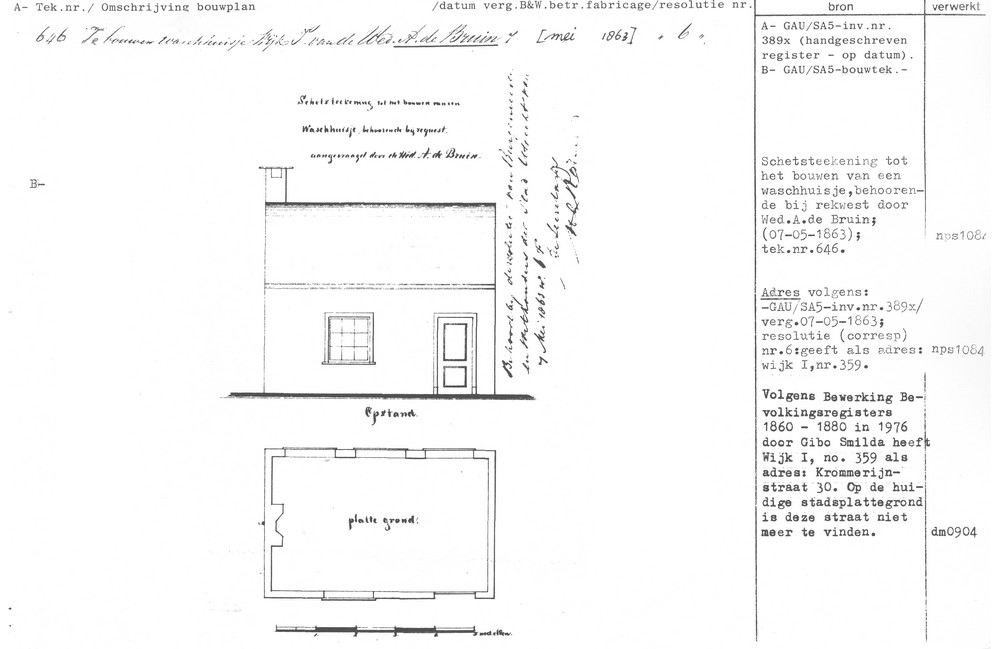 A- Tek.nr./ Omschrijving bouwplan /datum verg.B&W.betr.fabricage/resolutie nr.
bron
verwerkt
646 Te bouwen waschhuisje Wijk I. van de Wed. A. de Bruin 7 [mei 1863] " 6 "
A- GAU/SA5-inv.nr.
389x (handgeschreven
register - op datum).
B- GAU/SA5-bouwtek.-
B-
Schetsteekening tot het bouwen van een
Waschhuisje, behoorende by request.
aangevraagd door de Wed. A. de Bruin.
Behoort bij de resolutie van Burgemeester
en Wethouders der Stad Utrecht van
7 Mei 1863 no. 6 F
De Secretaris
Opstand.
platte grond.
5 ned. ellen.
Schetsteekening tot
het bouwen van een
waschhuisje,behooren-
de bij rekwest door
Wed.A.de Bruin;
(07-05-1863);
tek.nr.646.
nps1084
Adres volgens:
-GAU/SA5-inv.nr.389x/
verg.07-05-1863;
resolutie (corresp)
nr.6:geeft als adres:
wijk I,nr.359.
nps1084
Volgens Bewerking Be-
volkingsregisters
1860 - 1880 in 1976
door Gibo Smilda heeft
Wijk I, no. 359 als
adres: Krommerijn-
straat 30. Op de hui-
dige stadsplattegrond
is deze straat niet
meer te vinden.
dm0904